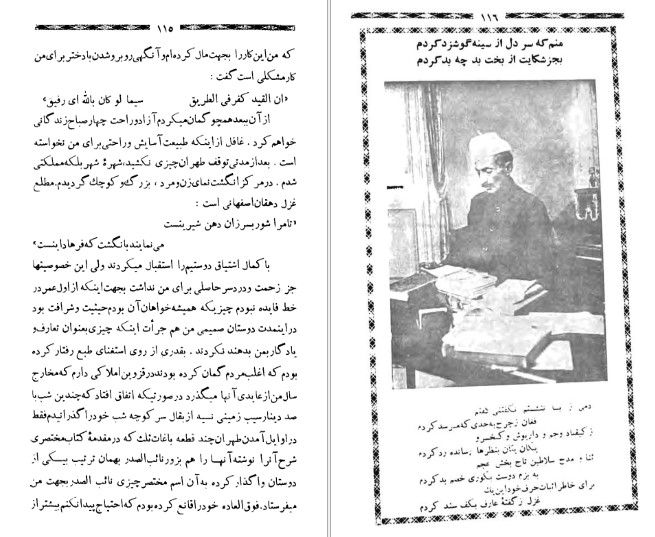 ۱۱۵
که من این کار را بجهت مال کرده‌ام و آنگهی روبرو شدن با دختر برای من
کار مشکلی است گفت :
«ان القید کفر فی الطریق سیما لو کان بالله ای رفیق»
از آن ببعد همچو گمان میکردم آزاد و راحت چهار صباح زندگانی
خواهم کرد . غافل از اینکه طبیعت آسایش و راحتی برای من نخواسته
است . بعد از مدتی توقف طهران چیزی نکشید، شهرهٔ شهر بلکه مملکتی
شدم . در مرکز انگشت نمای زن و مرد ، بزرگ و کوچک گردیدم. مطلع
غزل دهقان اصفهانی است :
«تا مرا شور بسر زان دهن شیرینست
می نمایند بانگشت که فرهاد اینست»
با کمال اشتیاق دوستیم را استقبال میکردند ولی این خصوصیتها
جز زحمت و دردسر حاصلی برای من نداشت بجهت اینکه از اول عمر در
خط فایده نبودم چیزیکه همیشه خواهان آن بودم حیثیت و شرافت بود
در اینمدت دوستان صمیمی من هم جرأت اینکه چیزی بعنوان تعارف و
یادگار بمن بدهند نکردند . بقدری از روی استغنای طبع رفتار کرده
بودم که اغلب مردم گمان کرده بودند در قزوین املاکی دارم که مخارج
سال من از عایدی آنها میگذرد در صورتیکه اتفاق افتاد که چندین شب با
صد دینار سیب زمینی نسیه از بقال سر کوچه شب خود را گذراندیم فقط
در اوایل آمدن طهران چند قطعه باغات ثلث که در مقدمهٔ کتاب مختصری
شرح آنرا نوشته آنها را هم بزور نائب الصدر بهمان ترتیب بیکی از
دوستان واگذار کرده به آن اسم مختصر چیزی نائب الصدر بجهت من
میفرستاد. فوق العاده خود را قانع کرده بودم که احتیاج پیدا نکنم بیشتر از
۱۱۶
منم که سر دل از سینه گوشزد کردم
بجز شکایت از بخت بد چه بد کردم
دمی ز پا ننشستم نگفتنی گفتم
فغان ز چرخ به حدی که میرسد کردم
ز کیقباد و جم و داریوش و کیخسرو
یکان یکان بنظرها رسانده رد کردم
ثنا و مدح سلاطین تاج بخش عجم
به بزم دوست بکوری خصم بد کردم
برای خاطر اثبات حرف خود این یک
غزل ز گفتهٔ عارف بکف سند کردم